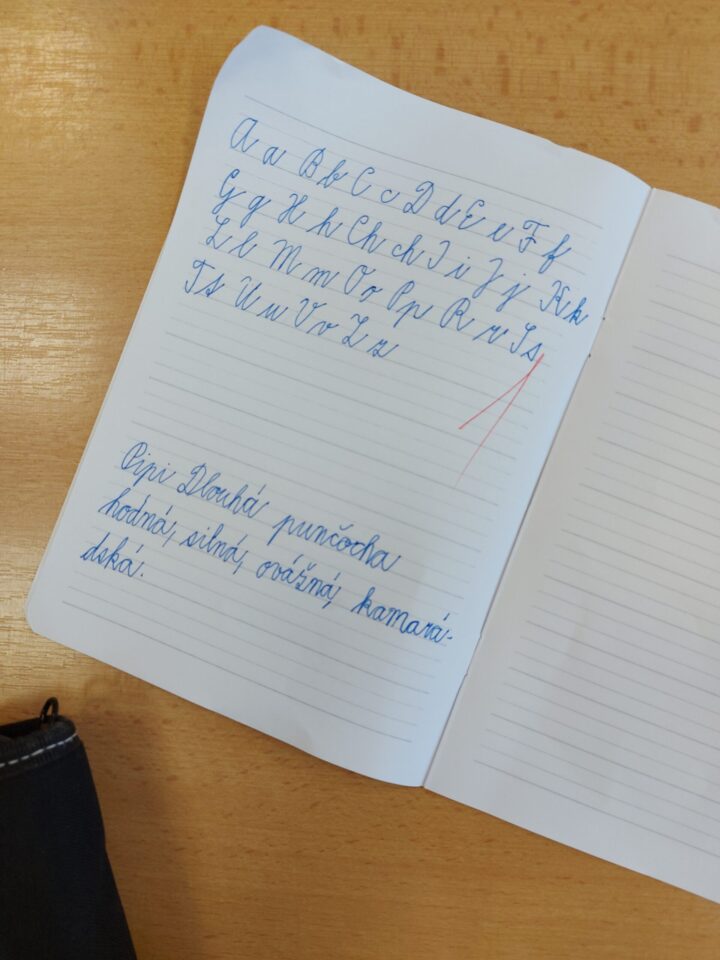 A a B b C c D d E e F f
G g H h Ch ch I i J j K k
L l M m O o P p R r S s
T t U u V v Z z
Pipi Dlouhá punčocha
hodná, silná, ovážná, kamará-
dská.